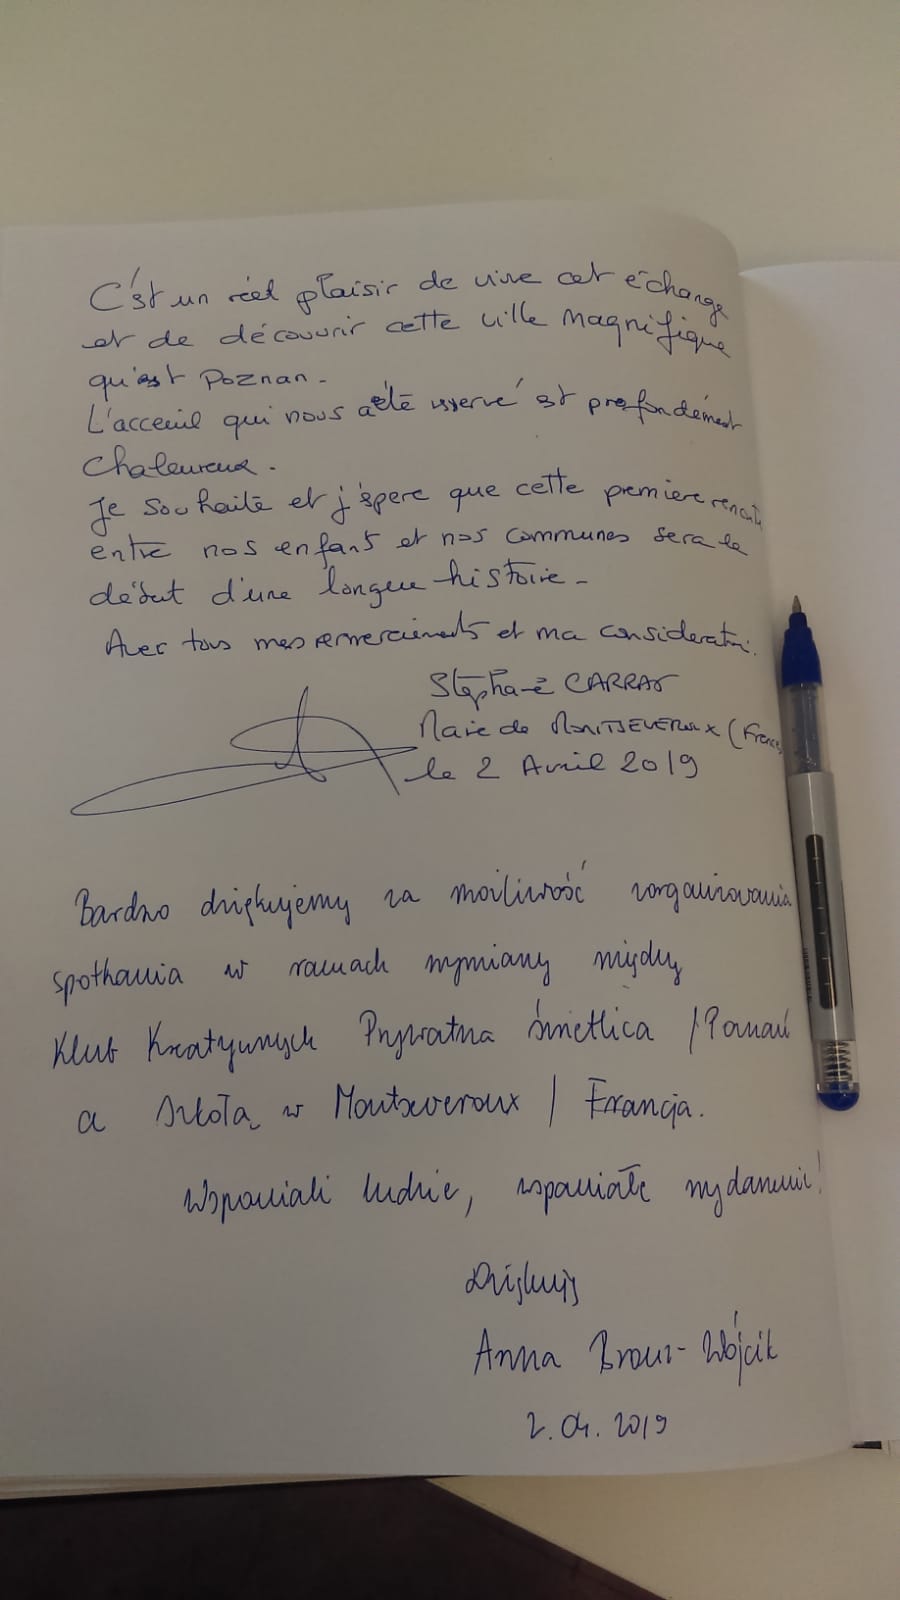 C'est un réel plaisir de vivre cet échange
et de découvrir cette ville magnifique
qu'est Poznan.
L'acceuil qui nous a été réservé est profondément
chaleureux.
Je souhaite et j'éspère que cette premiere rencontre
entre nos enfants et nos communes sera le
début d'une longue histoire.
Avec tous mes remerciements et ma consideration.
Stéphane CARRAS
Maire de MONTSEVEROUX (France)
le 2 Avril 2019
Bardzo dziękujemy za możliwość zorganizowania
spotkania w ramach wymiany między
Klub Kreatywnych Prywatna Świetlica / Poznań
a Szkołą w Montseveroux / Francja.
Wspaniali ludzie, wspaniałe wydarzenie!
Dziękuję
Anna -Wójcik
2.04.2019